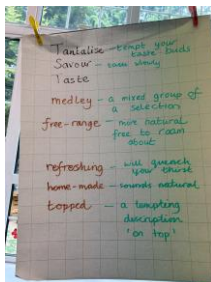 Tantalise - tempt your
taste buds
Savour - taste slowly
Taste
medley - a mixed group of
a selection
free-range - more natural
free to roam
about
refreshing - will quench
your thirst
home-made - sounds natural
topped - a tempting
description
'on top'